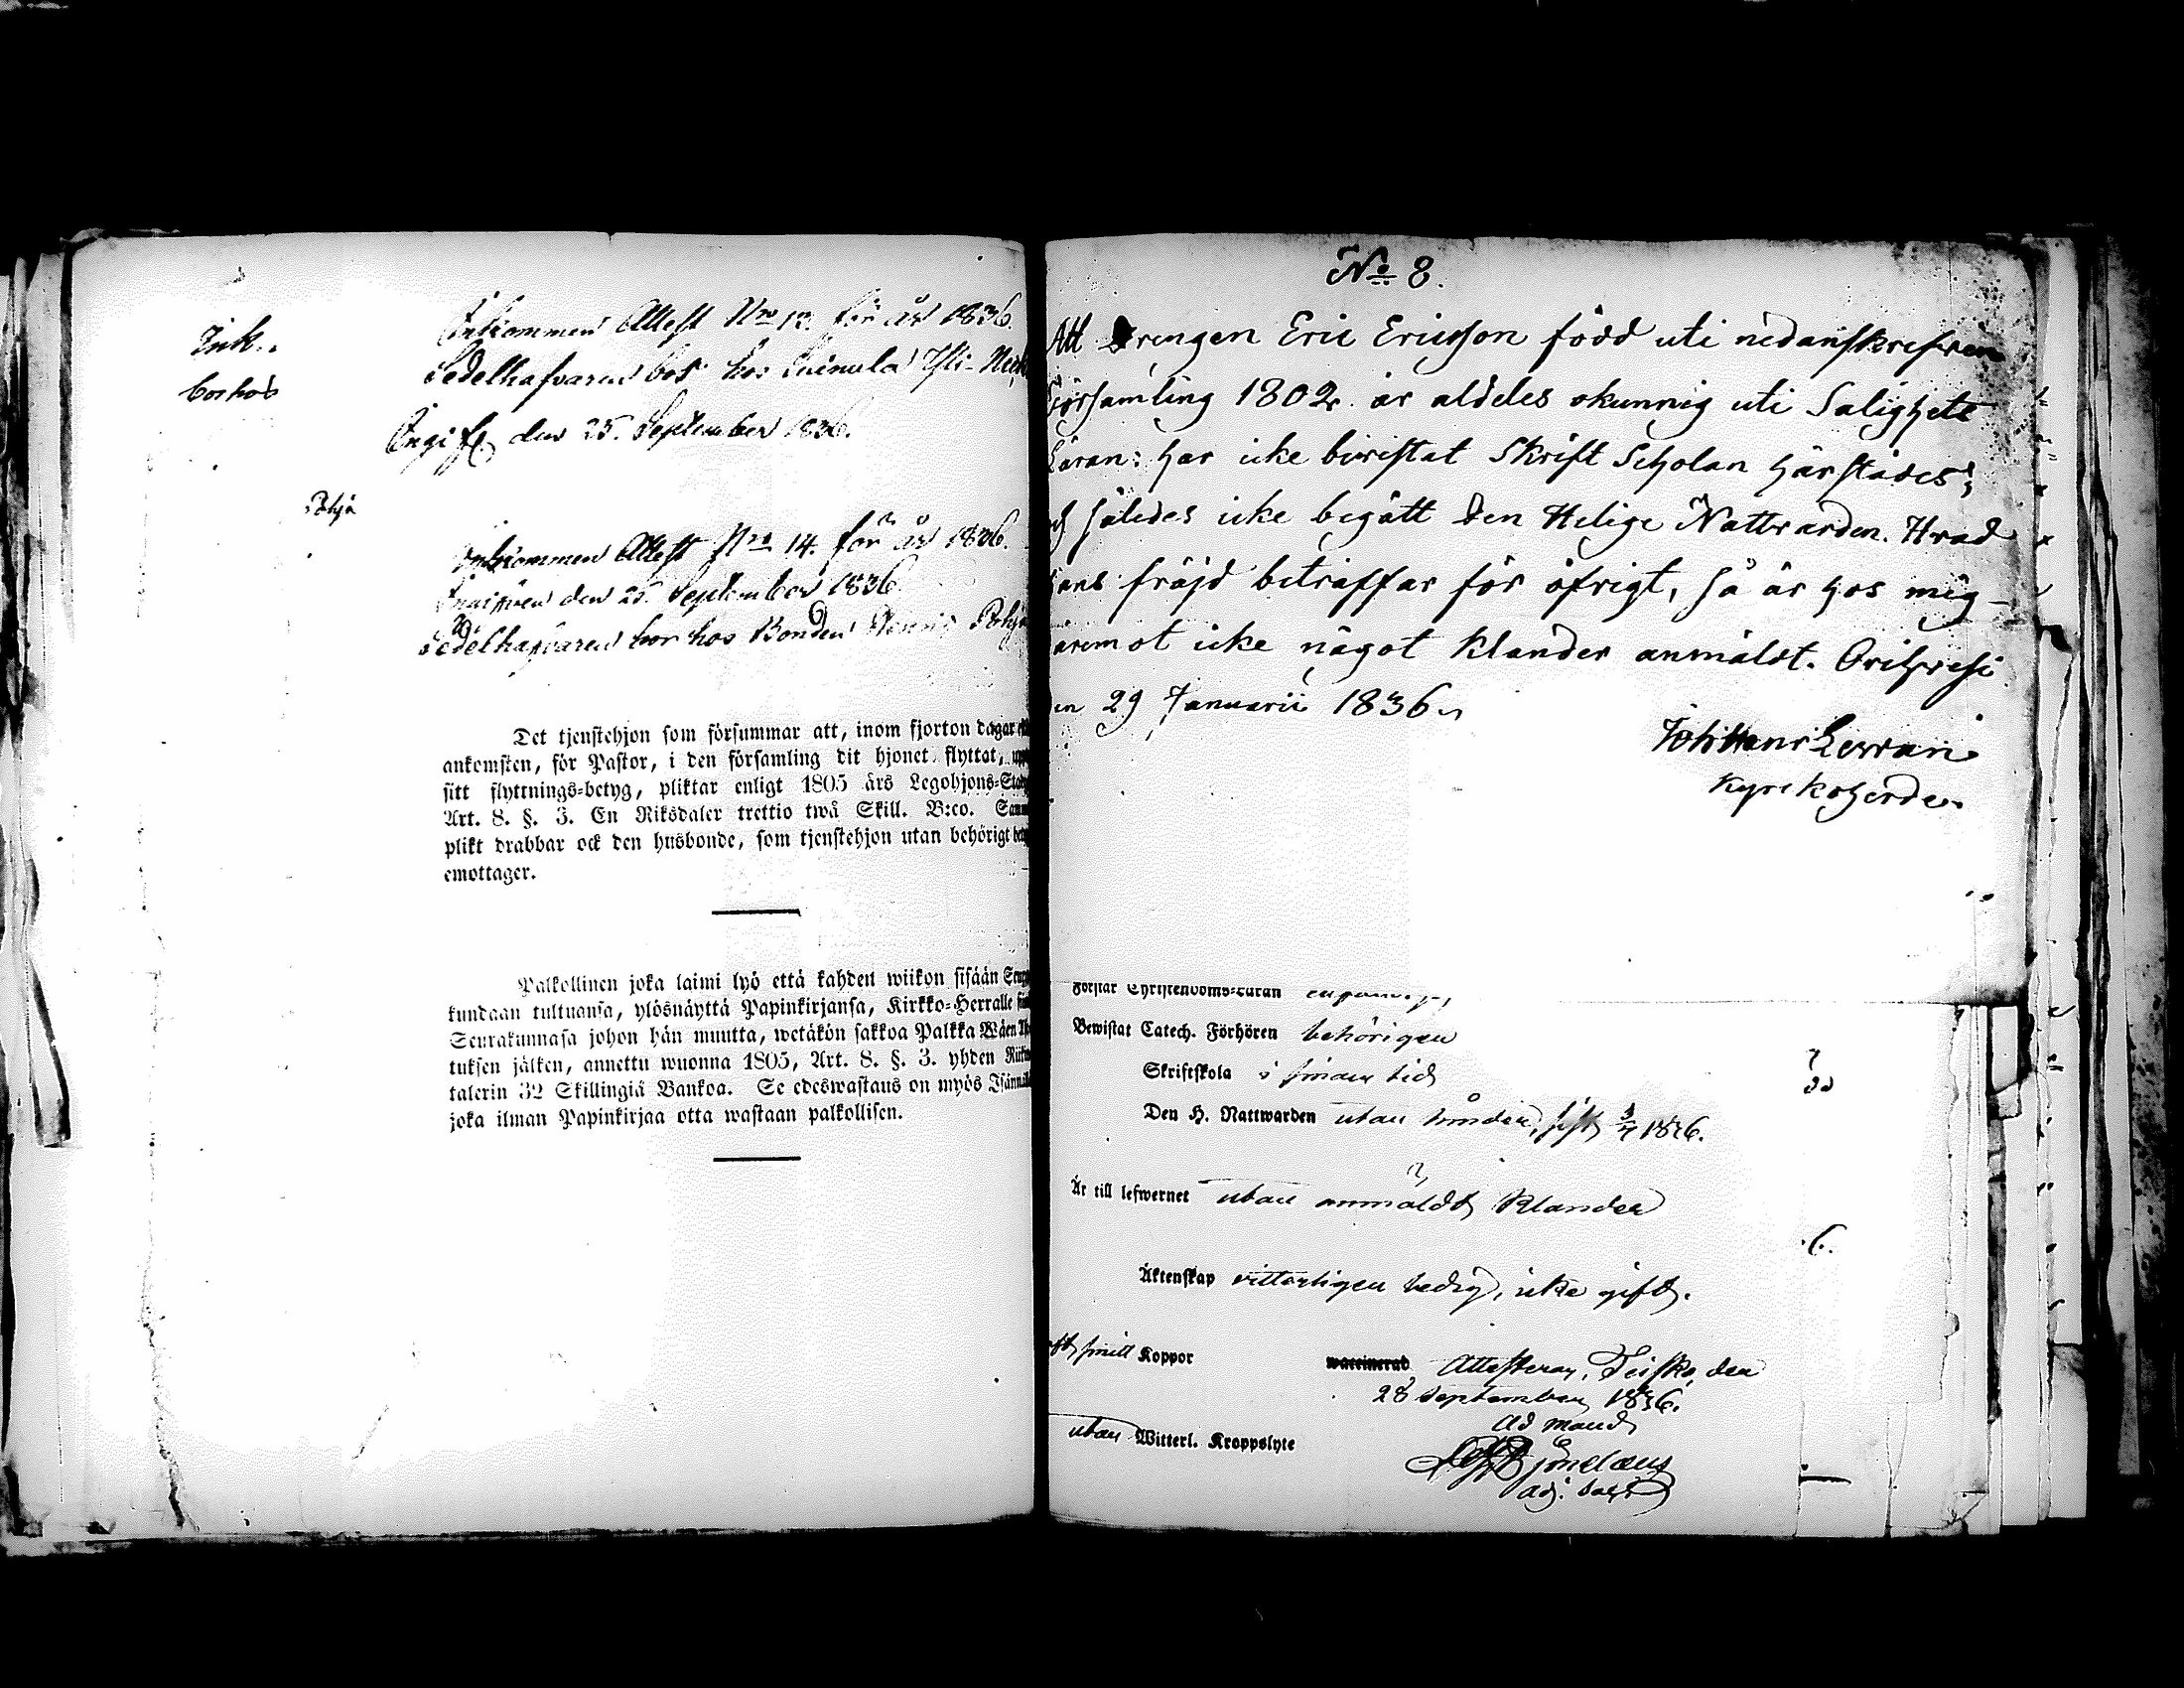 Ink..
bor hos
Pohja
Inkommen Attest Nro 13. för år 1836.
Sedelhafvaren bor hos Suinula Yli-
Ingif. den 25. September 1836.
Inkommen Attest Nro 14. för år 1836.
Ingifven den 25. September 1836.
Sedelhafvaren bor hos Bonden Pohja
Det tjenstehjon som försummar att, inom fjorton dagar
ankomsten, för Pastor, i den församling dit hjonet flyttat,
sitt flyttnings-betyg, pliktar enligt 1805 års Legohjons-
Art. 8. §. 3. En Riksdaler trettio twå Skill. B:co.
plikt drabbar ock den husbonde, som tjenstehjon utan behörigt
emottager.
Palkollinen joka laimi lyö että kahden wiikon sisään
kundaan tultuansa, ylösnäyttä Papinkirjansa, Kirkko-Herralle
Seurakunnasa johon hän muutta, wetäkön sakkoa Palkka Wäen
tuksen jälken, annettu wuonna 1805, Art. 8. §. 3. yhden
talerin 32 Skillingiä Bankoa. Se edeswastaus on myös
joka ilman Papinkirjaa otta wastaan palkollisen.
No 8.
Att Drengen Eric Ericsson född uti nedanskrefven
Församling 1802. är aldeles okunnig uti Salighets
Läran: har icke bivistat Skrift Scholan härstädes;
således icke begått den Helige Nattvarden. Hvad
hans fräjd beträffar för öfrigt, så är hos mig
däremot icke något klander anmäldt. Orihvesi
den 29 Januarii 1836.
Joh Hanr Levvan
Kyrckoherde.
Förstår Christendoms-Läran
Bewistat Catech. Förhören behörigen
Skriftskola i sinom tid
Den H. Nattwarden utan hinder, sist 3/7 1836.
Är till lefwernet utan anmäldt klander
Äktenskap vitterligen ledig, icke gift.
haft, smitt Koppor waccinerad Attesterar, Teisko, den
28 September 1836.
Ad mand
utan Witterl. Kroppslyte
adj. Sacr